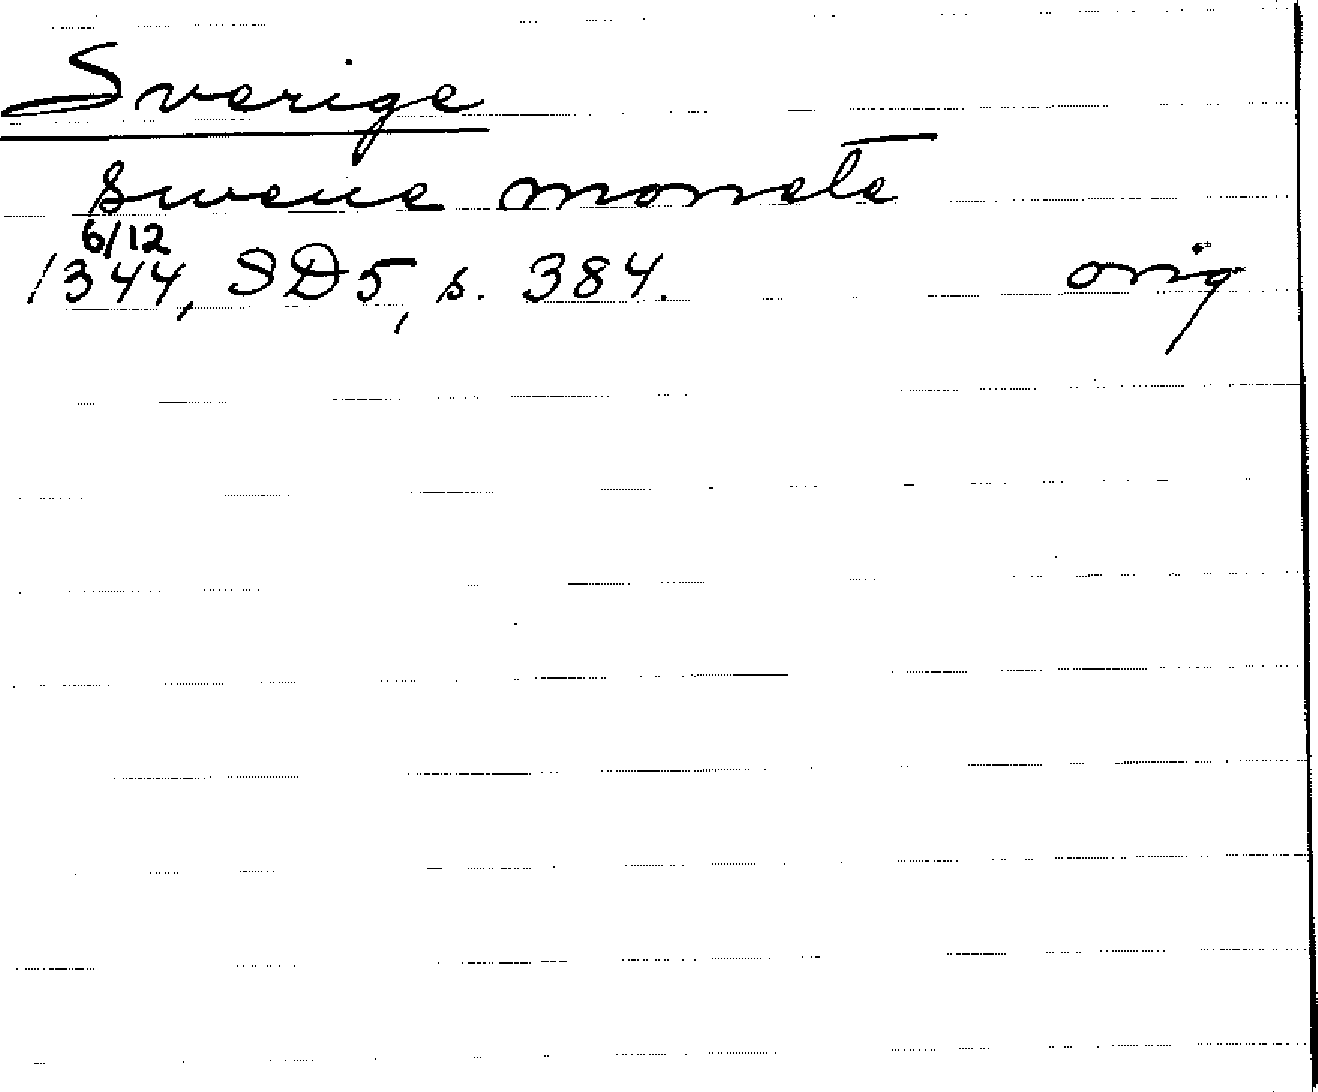 Sverige
swene monete
6/12
1344, SD5, s. 384. orig